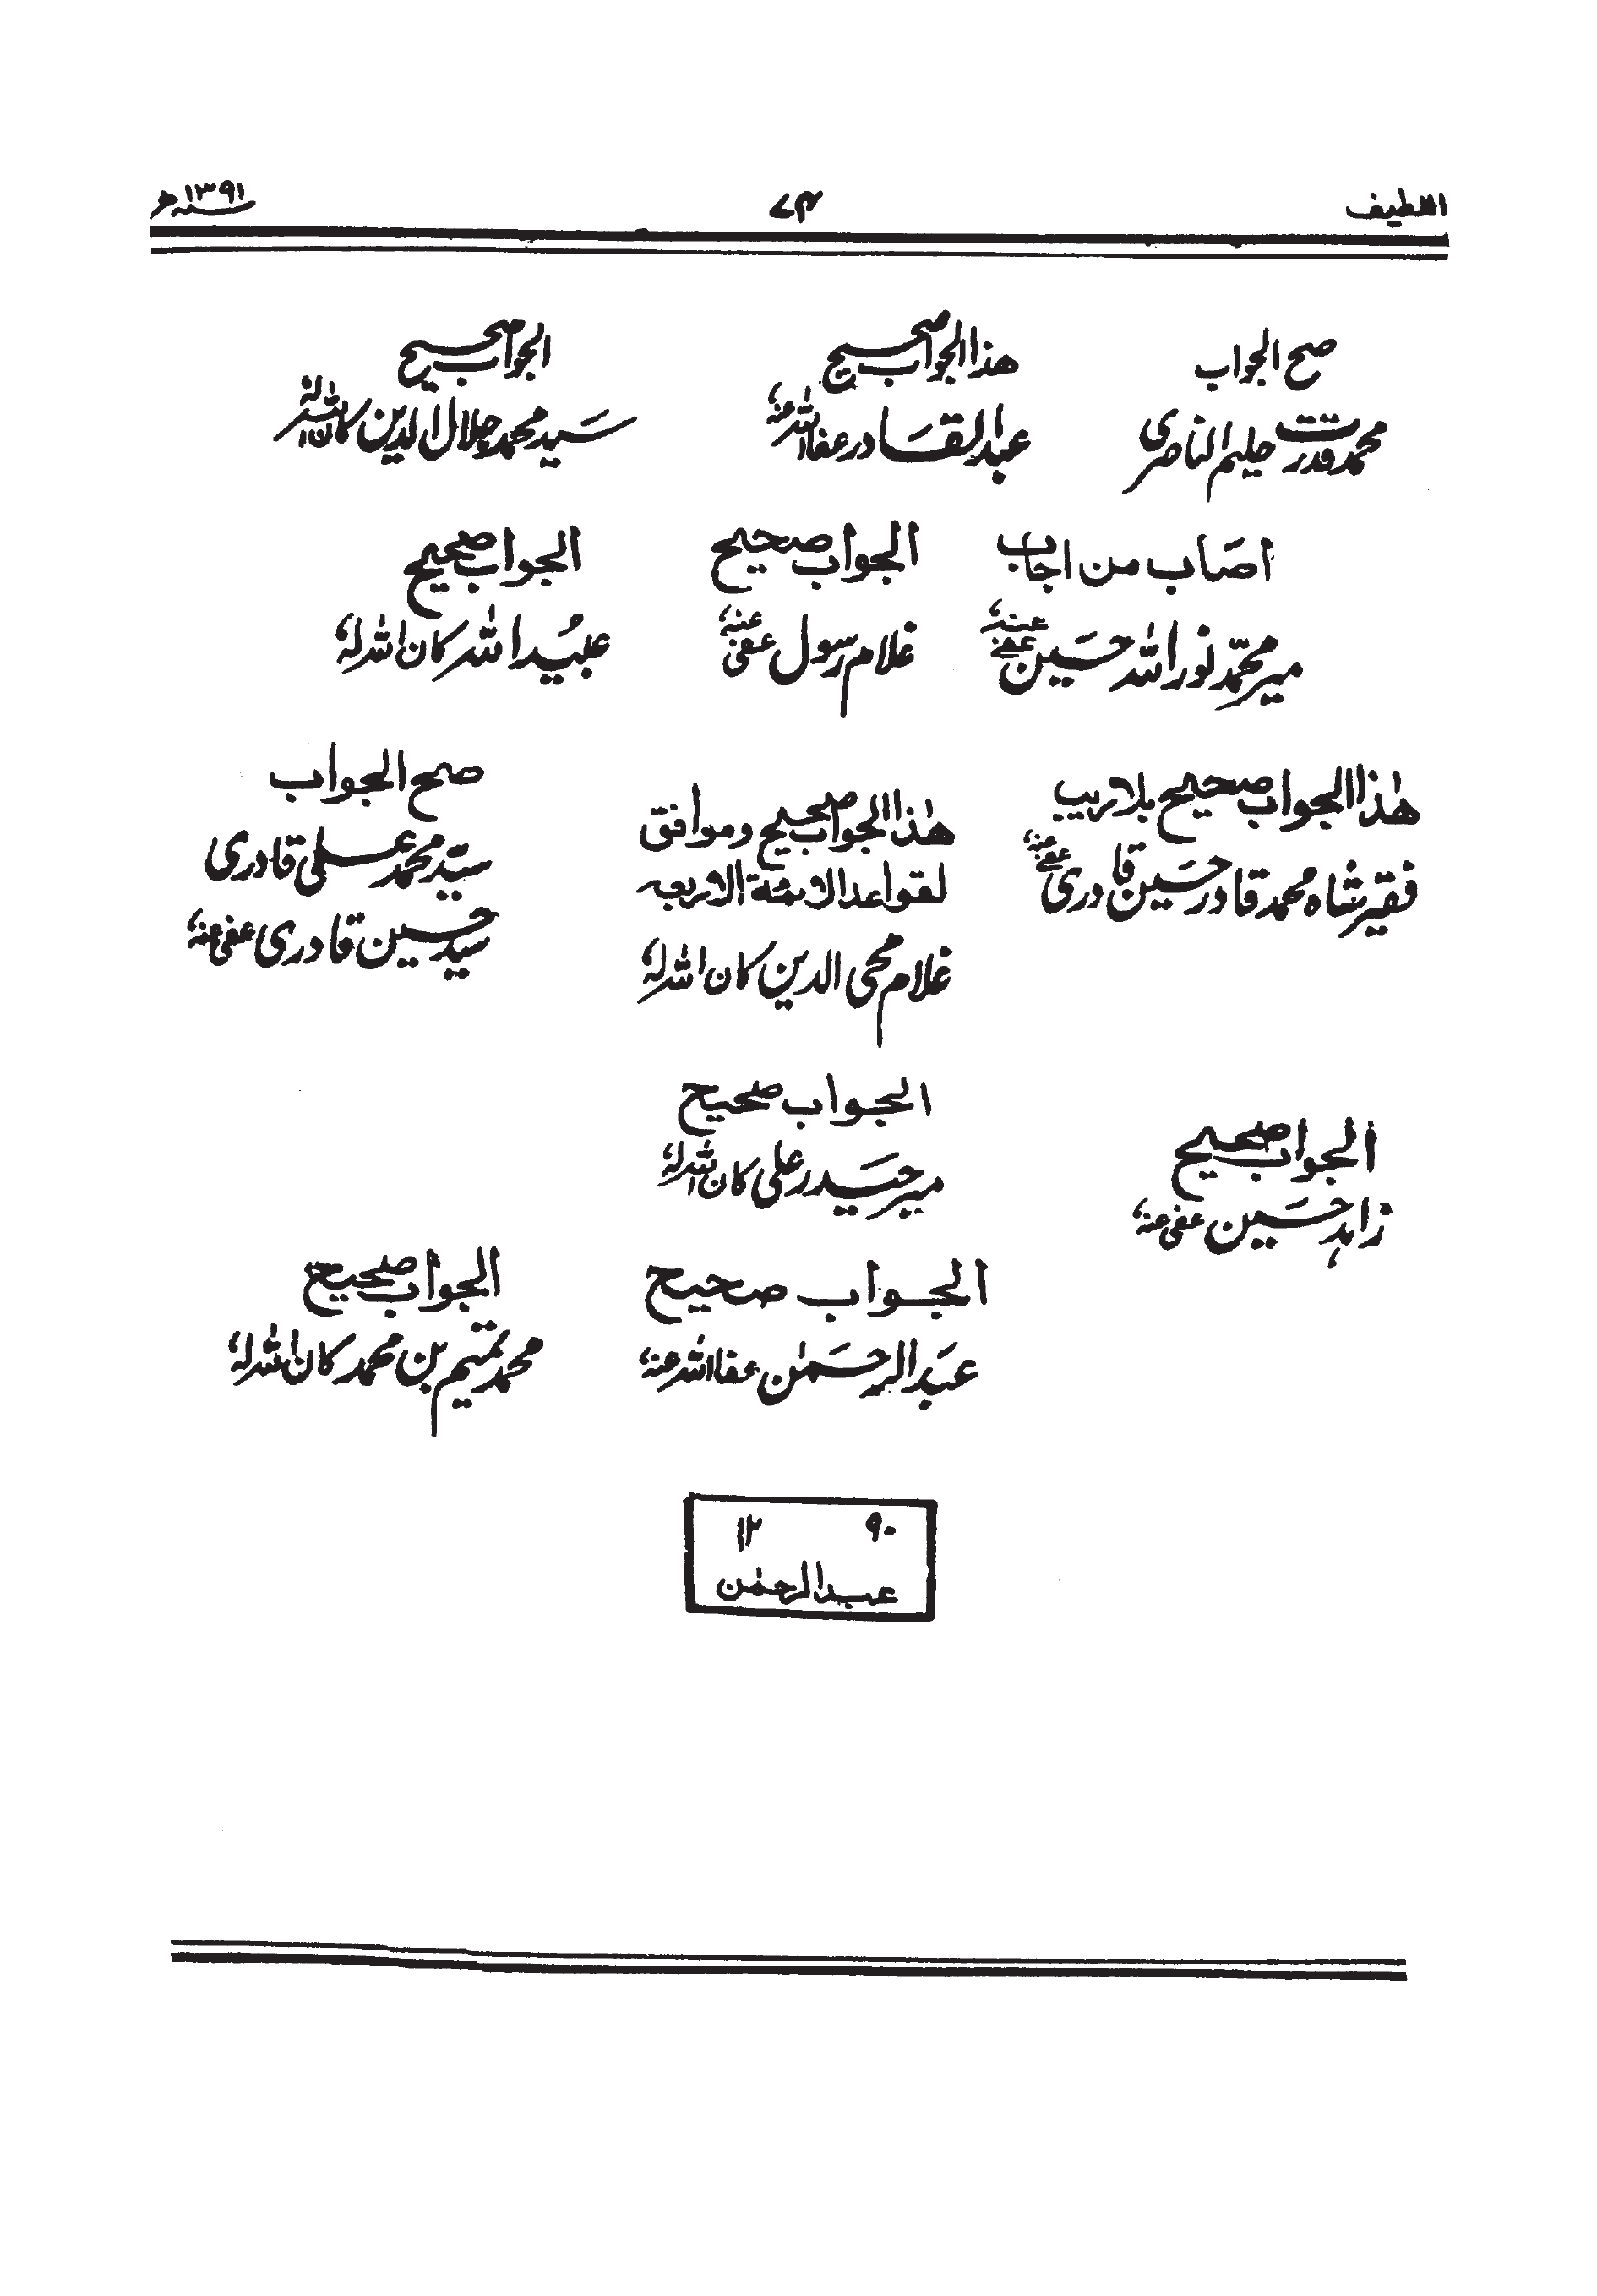 اللطیف
۷۴
۱۳۹۱ ھ
صح الجواب
محمد قدرت حلیم الناصری
هذا الجواب صحیح
عبد القادر عفا الله عنهٗ
الجواب صحیح
سَید محمد جلال الدین کان الله لهٗ
اصَاب من اجاب
میر محمّد نور الله حسَین عفی عنهٗ
الجواب صحیح
غلام رسول عفی عنهٗ
الجواب صحیح
عبُید الله کان الله لهٗ
هٰذا الجواب صحیح بلا ریب
فقیر شاه محمد قادر حسین قادری عفی عنهٗ
هٰذا الجواب صحیح و موافق
لقواعد الائمة الاربعه
غلام محی الدین کان الله لهٗ
صح الجواب
سیّد محمد علی قادری
سید حسین قادری عفی عنهٗ
الجواب صحیح
زاہد حسَین عفی عنهٗ
الجواب صحیح
میر حیدر علی کان الله لهٗ
الجواب صحیح
عبَد الرحمَٰن عفا الله عنهٗ
الجواب صحیح
محمد تمیم بن محمد کان الله لهٗ
۹۰ ۱۲
عبد الرحمٰن